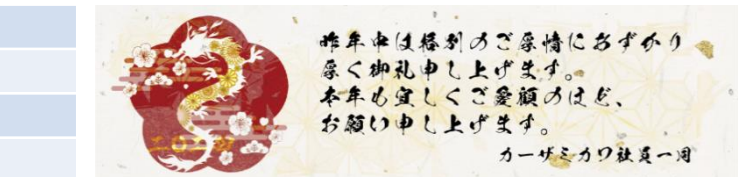 昨年中は格別のご厚情にあずかり
厚く御礼申し上げます。
本年も宜しくご愛顧のほど、
お願い申し上げます。
カーサミカワ社員一同
二〇二四